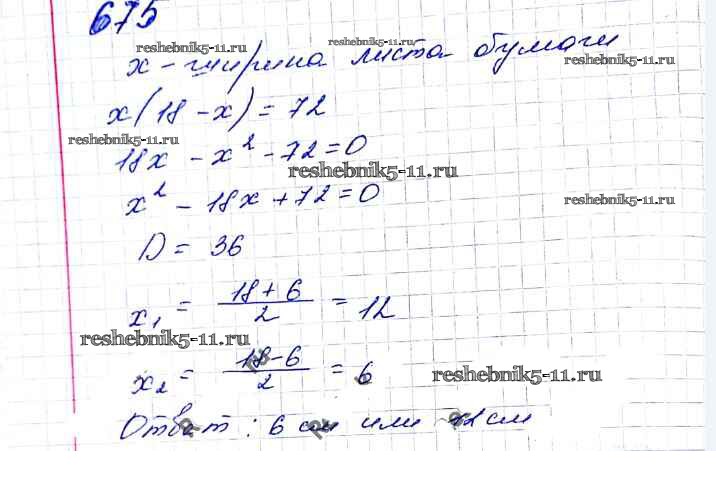 675
x - ширина листа бумаги
x(18 - x) = 72
18x - x² - 72 = 0
x² - 18x + 72 = 0
D = 36
x₁ = (18 + 6)/2 = 12
x₂ = (18 - 6)/2 = 6
Ответ: 6 см или 12 см
reshebnik5-11.ru
reshebnik5-11.ru
reshebnik5-11.ru
reshebnik5-11.ru
reshebnik5-11.ru
reshebnik5-11.ru
reshebnik5-11.ru
reshebnik5-11.ru